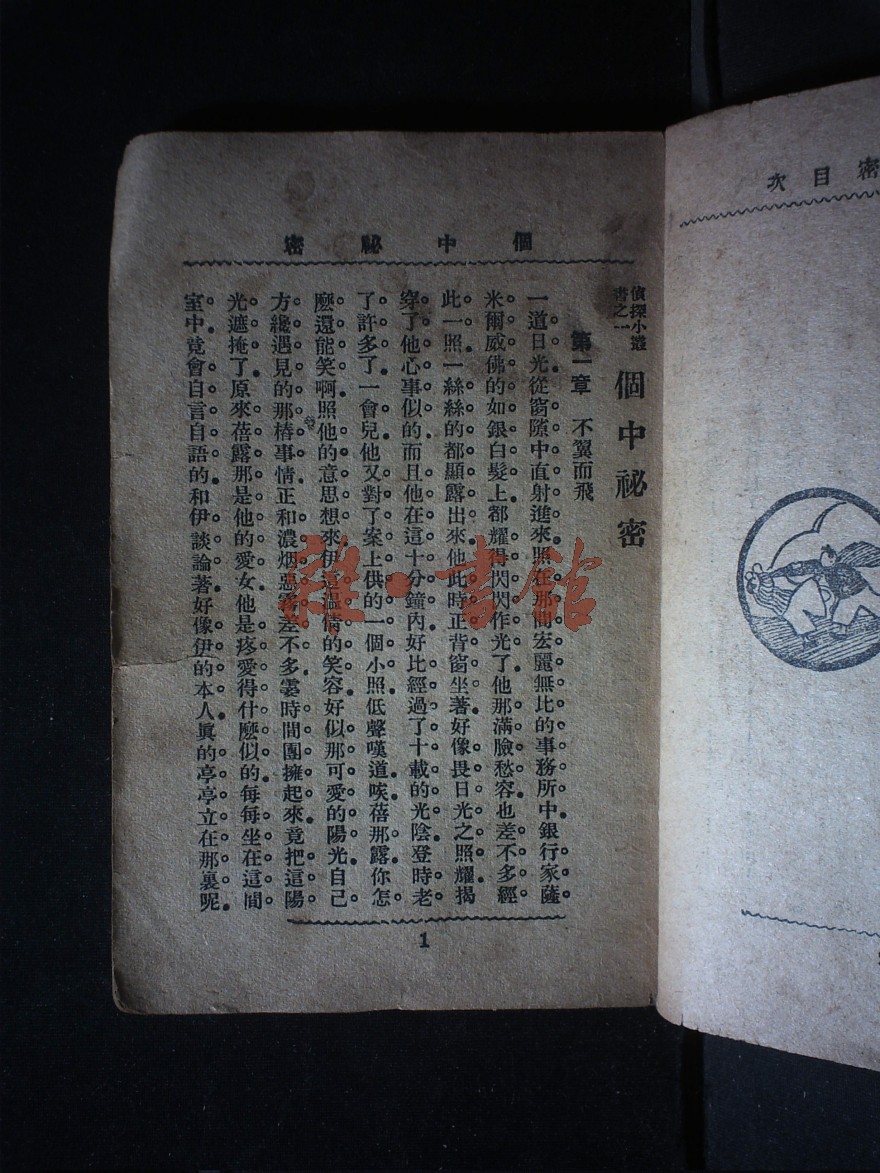 次目密
密祕中個
偵探小叢
書之一
個中祕密
第一章　不翼而飛
一道日光從窗隙中直射進來照在那間宏麗無比的事務所中銀行家薩
米爾威佛的如銀白髮上都耀得閃閃作光了他那滿臉愁容也差不多經
此一照一絲絲的都顯露出來他此時正背窗坐著好像畏日光之照耀揭
穿了他心事似的而且他在這十分鐘內好比經過了十載的光陰登時老
了許多了一會兒他又對了案上供的一個小照低聲嘆道唉蓓那露你怎
麼還能笑啊照他的意思想來伊這溫情的笑容好似那可愛的陽光自己
方纔遇見的那樁事情正和濃烟惡霧差不多霎時間團擁起來竟把這陽
光遮掩了原來蓓露那是他的愛女他是疼愛得什麼似的每每坐在這間
室中竟會自言自語的和伊談論著好像伊的本人眞的亭亭立在那裏呢
1
雜·書館